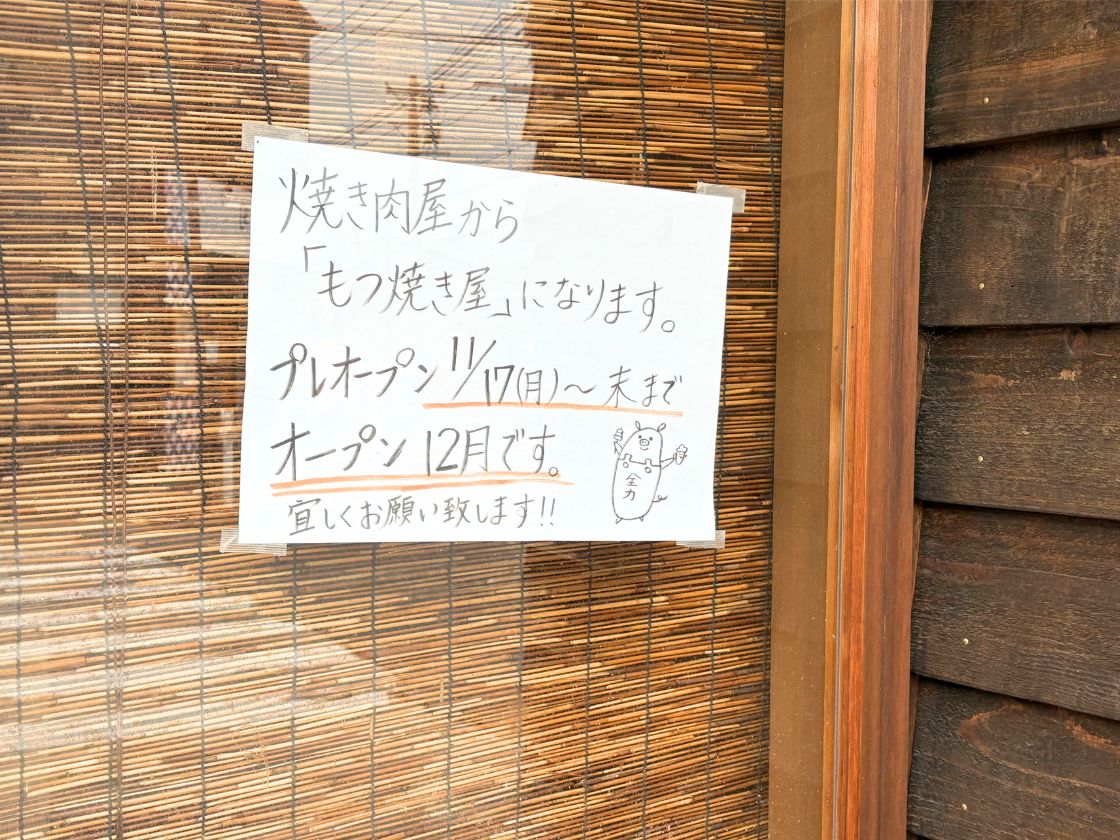 焼き肉屋から
「もつ焼き屋」になります。
プレオープン 11/17(月)～末まで
オープン 12月です。
宜しくお願い致します!!
全力